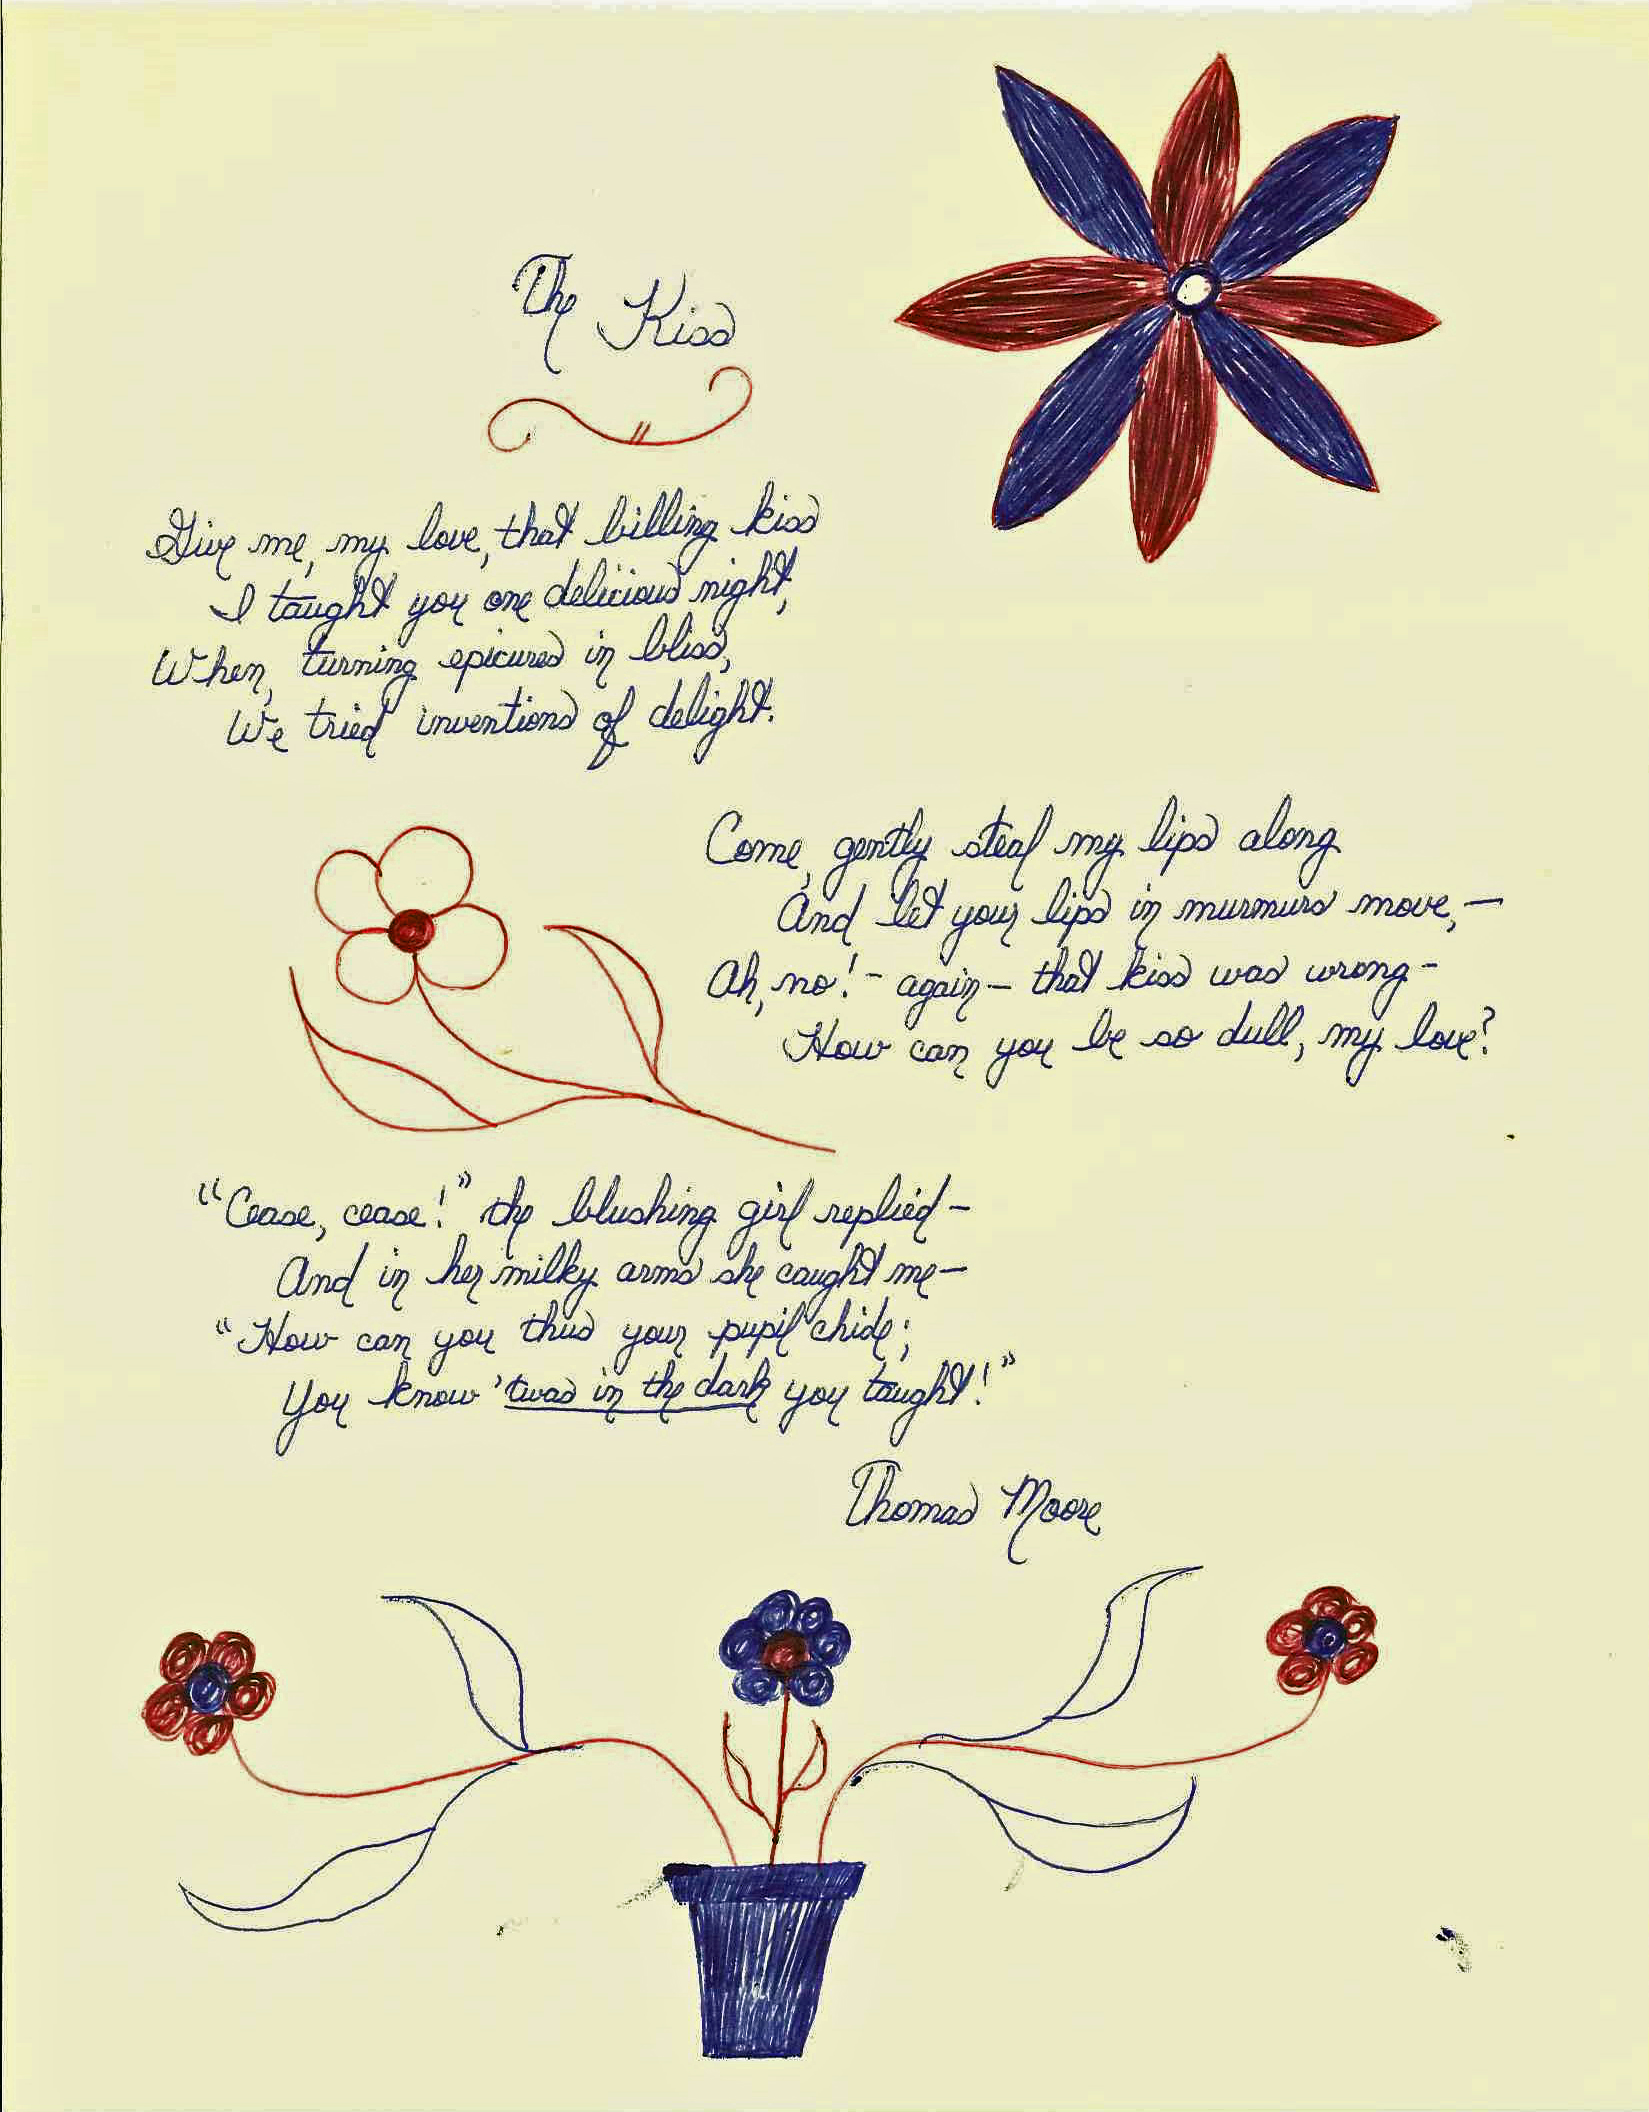 The Kiss
Give me, my love, that billing kiss
I taught you one delicious night,
When, turning epicures in bliss,
We tried inventions of delight.
Come, gently steal my lips along
And let your lips in murmurs move,—
Ah, no!- again— that kiss was wrong-
How can you be so dull, my love?
"Cease, cease!" the blushing girl replied-
And in her milky arms she caught me—
"How can you thus your pupil chide;
You know 'twas in the dark you taught!"
Thomas Moore